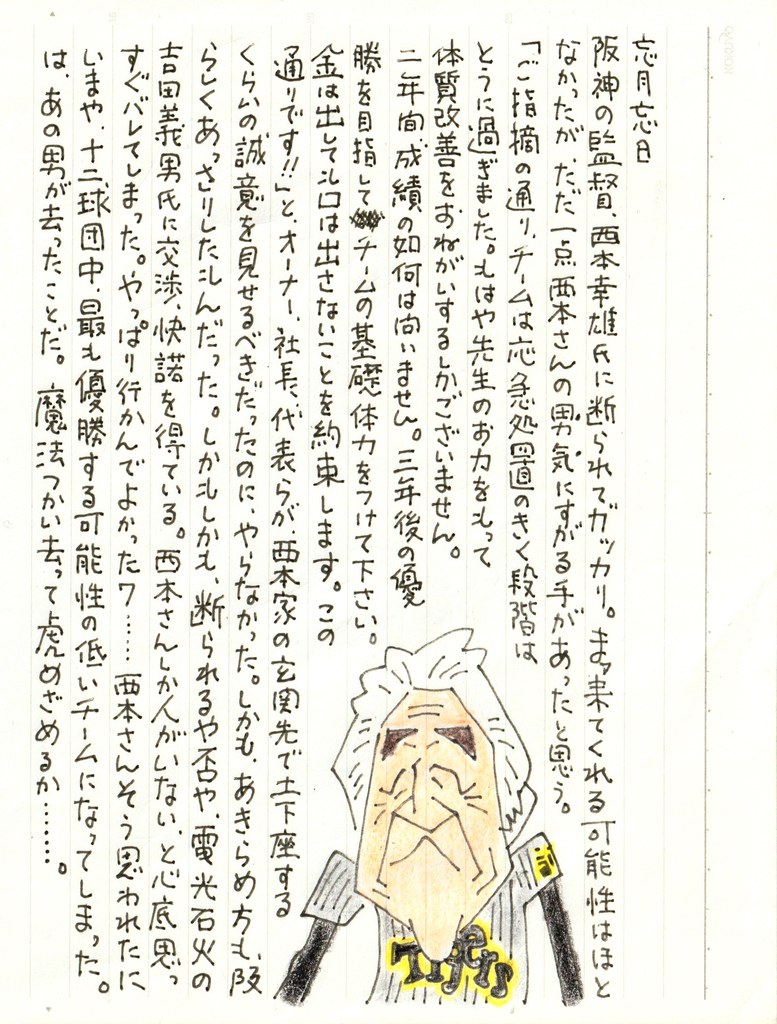 忘月忘日
阪神の監督、西本幸雄氏に断られてガッカリ。まァ来てくれる可能性はほと
なかったが、ただ一点西本さんの男気にすがる手があったと思う。
「ご指摘の通り、チームは応急処置のきく段階は
とうに過ぎました。もはや先生のお力をもって
体質改善をおねがいするしかございません。
二年間成績の如何は問いません。三年後の優
勝を目指してチームの基礎体力をつけて下さい。
金は出しても口は出さないことを約束します。この
通りです!!」と、オーナー、社長、代表らが、西本家の玄関先で土下座する
くらいの誠意を見せるべきだったのに、やらなかった。しかも、あきらめ方も、阪
らしくあっさりしたもんだった。しかもしかも、断られるや否や、電光石火の
吉田義男氏に交渉、快諾を得ている。西本さんしか人がいない、と心底思っ
すぐバレてしまった。やっぱり行かんでよかったワ……西本さんそう思われたに
いまや、十二球団中、最も優勝する可能性の低いチームになってしまった。
は、あの男が去ったことだ。魔法つかい去って虎めざめるか………。
Tigers